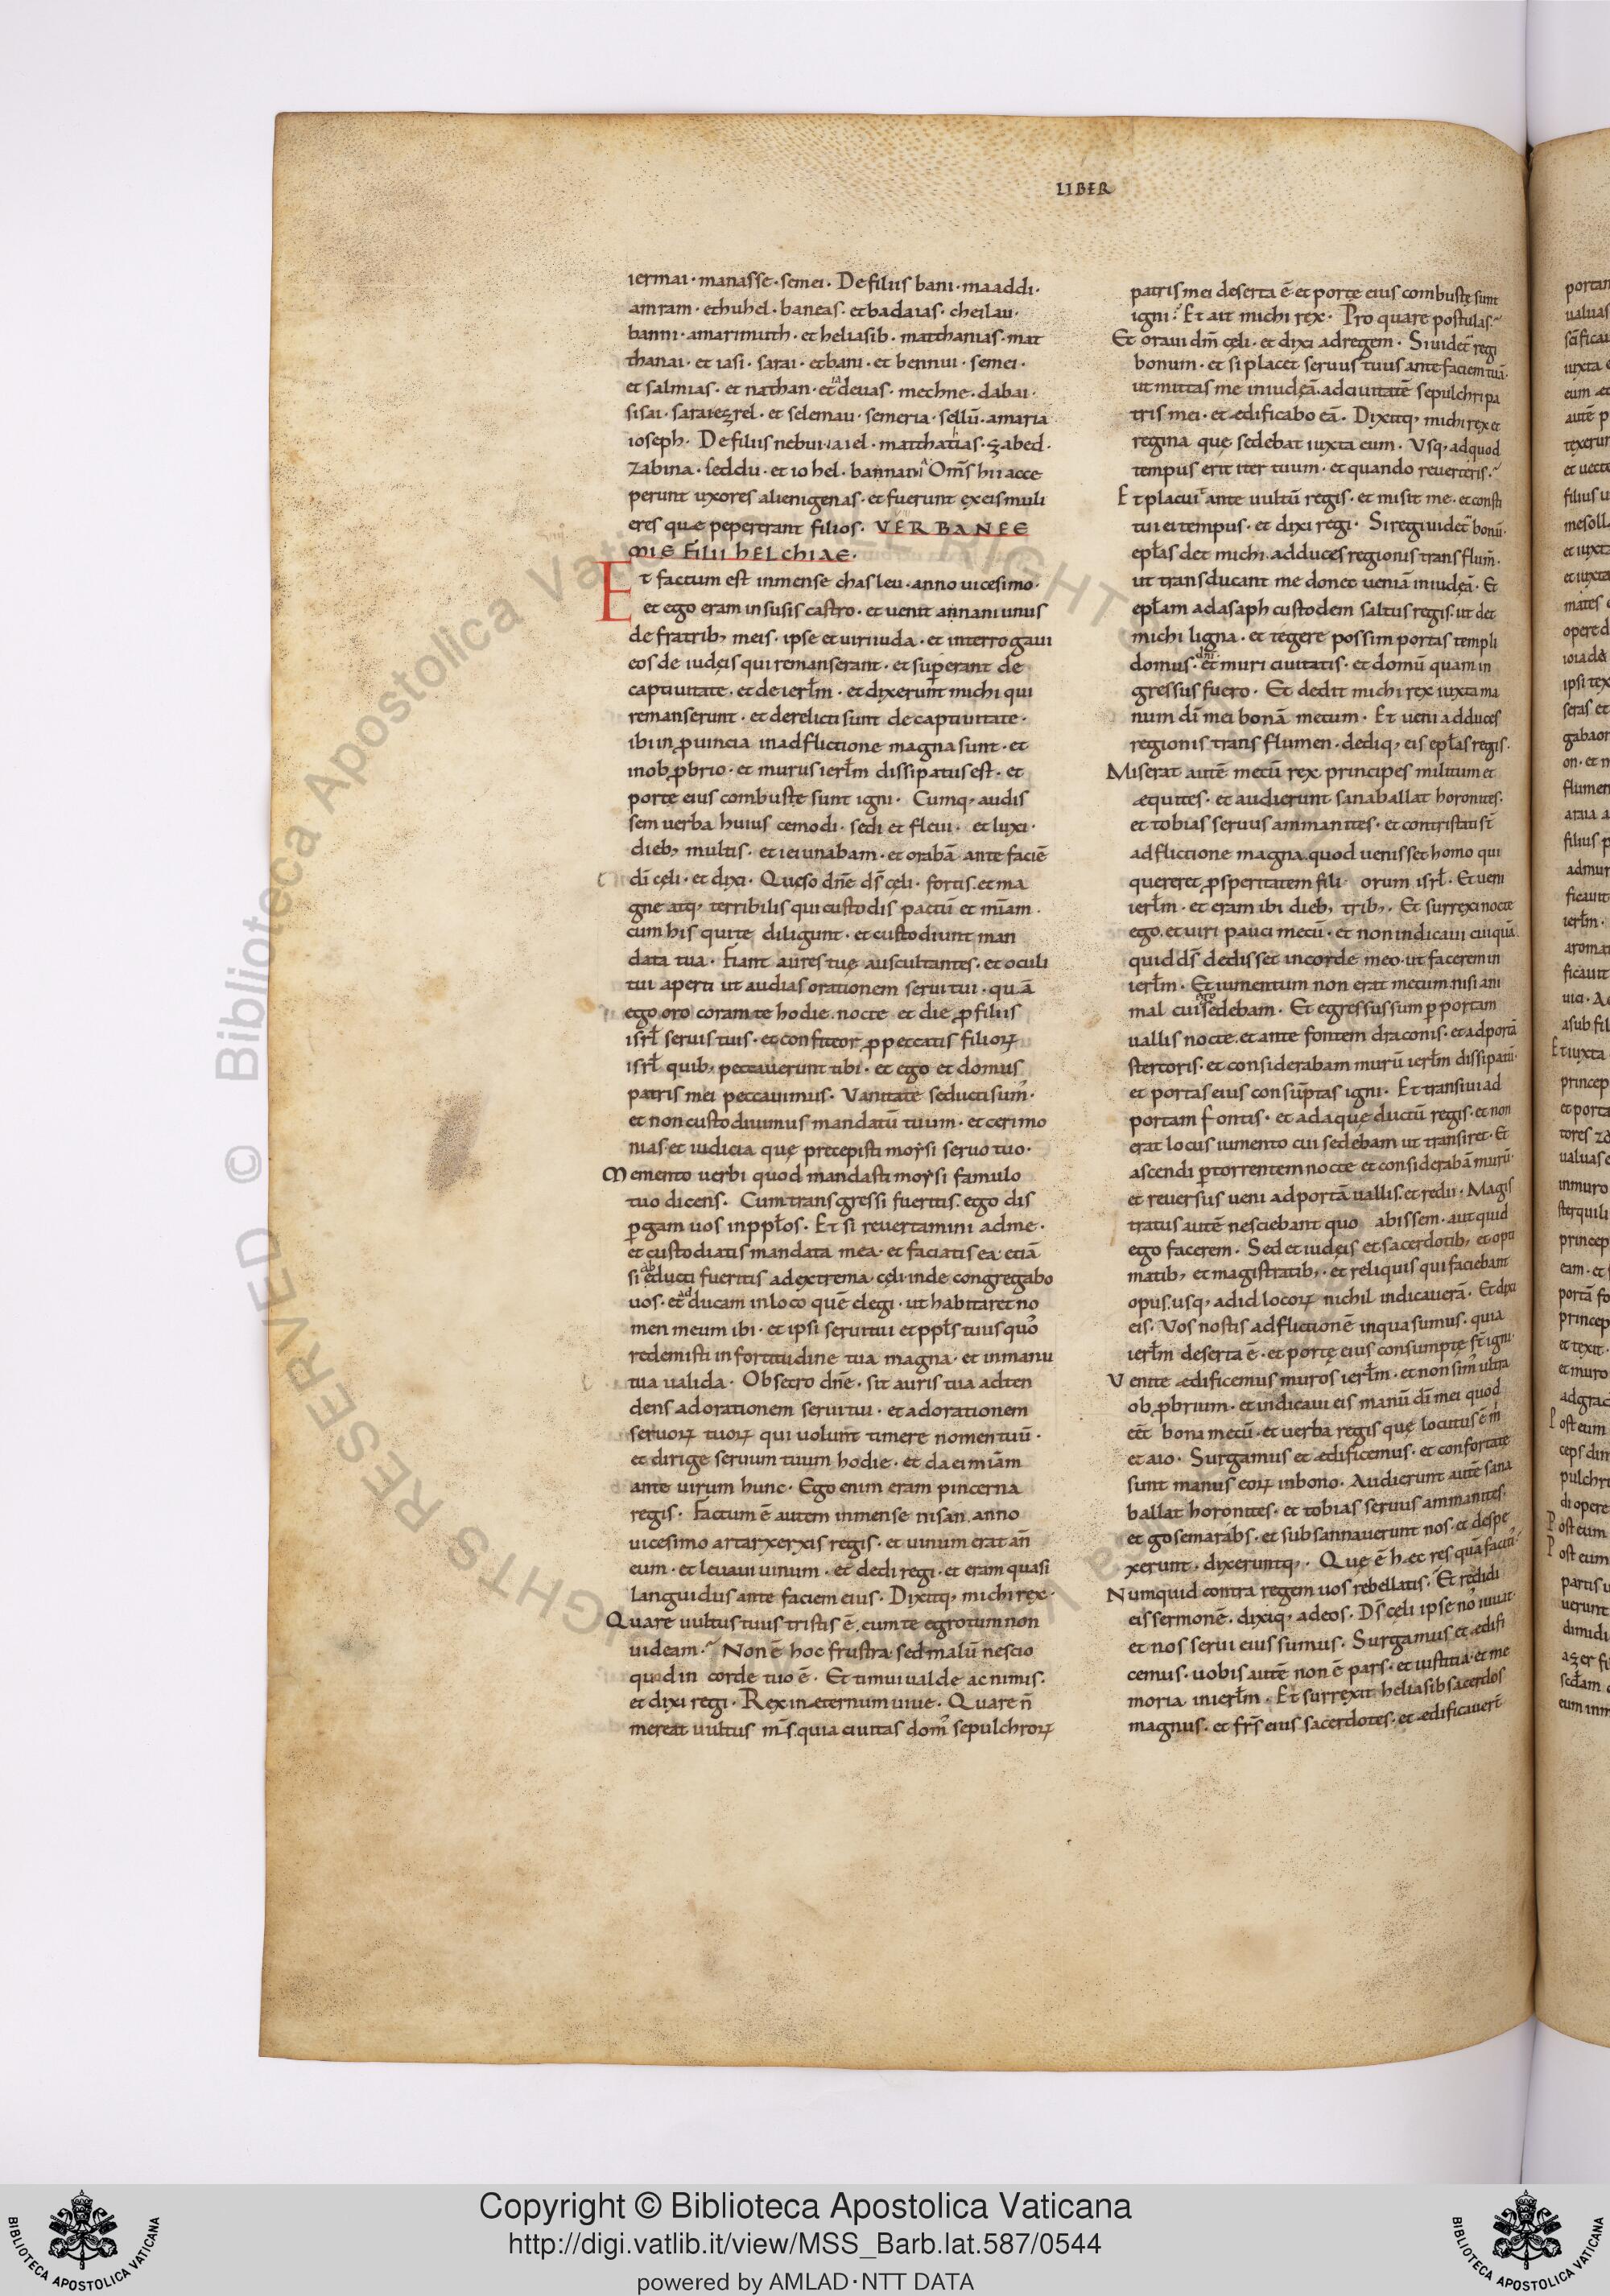 LIBER
iermai · manasse · semei · De filiis bani · maaddi ·
amram · et huhel · baneas · et badaias · cheilau ·
banni · amarimuth · et heliasib · matthanias · mat
thanai · et iasi · sarai · et bani · et bennui · semei ·
et salmias · et nathan · et deuas · mechne · dabai ·
sisai · saraiezrel · et selemau · semeria · sellū · amaria
ioseph · De filiis nebui · aiel · matthatias · zabed ·
zabina · ieddu · et iohel · bannani Om̄s hii acce
perunt uxores alienigenas · et fuerunt ex eis muli
eres quę pepererant filios · VERBA NEE
MIE FILII HELCHIAE ·
Et factum est in mense chasleu · anno uicesimo ·
et ego eram in susis castro · et uenit annani unus
de fratrib; meis · ipse et uiri iuda · et interrogaui
eos de iudęis qui remanserant · et superant de
captiuitate · et de ierlm̄ · et dixerunt michi qui
remanserunt · et derelicti sunt de captiuitate ·
ibi in ꝓuincia in adflictione magna sunt · et
in obꝓbrio · et murus ierlm̄ dissipatus est · et
portę eius combustę sunt igni · Cumq; audis
sem uerba huius cemodi · sedi et fleui · et luxi ·
dieb; multis · et ieiunabam · et orabā ante faciē
dī cęli · et dixi · Quęso dn̄e ds̄ cęli · fortis et ma
gne atq; terribilis qui custodis pactū et mīam ·
cum his qui te diligunt · et custodiunt man
data tua · Fiant aures tuę auscultantes · et oculi
tui aperti ut audias orationem serui tui · quā
ego oro coram te hodie nocte et die ꝓ filiis
isrł seruis tuis · et confiteor ꝓ peccatis filioꝝ
isrł quib; peccauerunt tibi · et ego et domus
patris mei peccauimus · Vanitate seducti sum' ·
et non custodiuimus mandatū tuum · et cerimo
nias et iudicia quę precepisti moysi seruo tuo ·
Memento uerbi quod mandasti moysi famulo
tuo dicens · Cum transgressi fueritis · ego dis
ꝑgam uos in ppłos · Et si reuertamini ad me ·
et custodiatis mandata mea · et faciatis ea · etiā
si abducti fueritis ad extrema cęli · inde congregabo
uos · et adducam in loco quē elegi · ut habitaret no
men meum ibi · et ipsi serui tui et ppłs tuus quo'
redemisti in fortitudine tua magna · et in manu
tua ualida · Obsecro dn̄e · sit auris tua adten
dens ad orationem serui tui · et ad orationem
seruoꝝ tuoꝝ qui uolunt timere nomen tuū ·
et dirige seruum tuum hodie · et da ei mīam
ante uirum hunc · Ego enim eram pincerna
regis · Factum ē autem in mense nisan · anno
uicesimo artarxerxis regis · et uinum erat an̄
eum · et leuaui uinum · et dedi regi · et eram quasi
languidus ante faciem eius · Dixitq; michi rex ·
Quare uultus tuus tristis ē · cum te egrotum non
uideam · Non ē hoc frustra sed malū nescio
quod in corde tuo ē · Et timui ualde ac nimis ·
et dixi regi · Rex in ęternum uiue · Quare n̄
mereat uultus m̄s · quia ciuitas dom' sepulchroꝝ
patris mei deserta ē · et portę eius combustę sunt
igni · Et ait michi rex · Pro qua re postulas ·
Et oraui dn̄ cęli · et dixi ad regem · Si uidet regi
bonum · et si placet seruus tuus ante faciem tuā ·
ut mittas me in iudęā · ad ciuitatē sepulchri pa
tris mei · et ędificabo eā · Dixitq; michi rex et
regina quę sedebat iuxta eum · Vsq; ad quod
tempus erit iter tuum · et quando reuerteris ·
Et placuit ante uultū regis · et misit me · et consti
tui ei tempus · et dixi regi · Si regi uidet bonū ·
epłas det michi adduces regionis trans flum̄ ·
ut transducant me donec ueniā in iudęā · Et
epłam ad asaph custodem saltus regis · ut det
michi ligna · et tegere possim portas templi
domus · dn̄i et muri ciuitatis · et domū quam in
gressus fuero · Et dedit michi rex iuxta ma
num dī mei bonā mecum · Et ueni adduces
regionis trans flumen · dediq; eis epłas regis ·
Miserat autē mecū rex principes militum et
æquites · et audierunt sanaballat horonites ·
et tobias seruus ammanites · et contristati st̄
adflictione magna · quod uenisset homo qui
quereret ꝓsperitatem fili orum isrł · Et ueni
ierłm · et eram ibi dieb; trib; · Et surrexi nocte
ego · et uiri pauci mecū · et non indicaui cuiquā
quid ds̄ dedisset in corde meo · ut facerem in
ierłm · Et iumentum non erat mecum nisi ani
mal cui ego sedebam · Et egressus sum ꝑ portam
uallis nocte · et ante fontem draconis · et ad portā
stercoris · et considerabam murū ierłm dissipatū ·
et portas eius consūptas igni · Et transiui ad
portam fontis · et ad aquę ductū regis · et non
erat locus iumento cui sedebam ut transiret · Et
ascendi ꝑ torrentem nocte et considerabā murū ·
et reuersus ueni ad portā uallis · et redii · Magis
tratus autē nesciebant quo abissem · aut quid
ego facerem · Sed et iudęis et sacerdotib; et opti
matib; et magistratib; · et reliquis qui faciebant
opus · usq; ad id locoꝝ nichil indicauerā · Et dixi
eis · Vos nostis adflictionē in qua sumus · quia
ierłm deserta ē · et portę eius consumptę st̄ igni ·
Venite ædificemus muros ierłm · et non sim' ultra
obꝓbrium · et indicaui eis manū dī mei quod
eēt bona mecū · et uerba regis quę locutus ē m̄
et aio · Surgamus et ædificemus · et confortate
sunt manus eoꝝ in bono · Audierunt autē sana
ballat horonites · et tobias seruus ammanites ·
et gosem arabs · et subsannauerunt nos · et despe
xerunt · dixeruntq; · Quę ē hæc res quā facitis ·
Numquid contra regem uos rebellatis · Et reddidi
eis sermonē · dixiq; ad eos · Ds̄ cęli ipse no' iuuat ·
et nos serui eius sumus · Surgamus et ædifi
cemus · uobis autē non ē pars · et iustitia et me
moria in ierłm · Et surrexit heliasib sacerdos
magnus · et fr̄s eius sacerdotes · et ædificauert̄
Copyright © Biblioteca Apostolica Vaticana
http://digi.vatlib.it/view/MSS_Barb.lat.587/0544
powered by AMLAD·NTT DATA